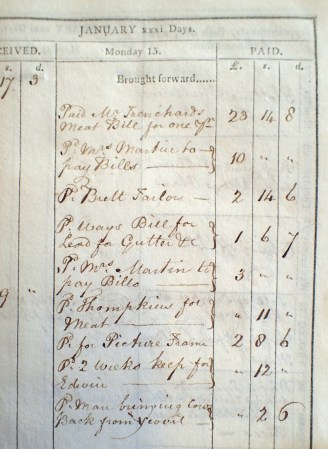 JANUARY xxxi Days.
CEIVED. Monday 15. PAID.
s. d. £. s. d.
17 3 Brought forward......
Paid Mr Trenchards
Meat Bill for one yr 23 14 8
Pd Mrs Martin to
pay Bills 10 " "
Pd Brett Tailor 2 14 6
Pd Ways Bill for
Lead for Gutter &c 1 6 7
Pd Mrs Martin to
pay Bills 3 " "
9 " Pd Thompkins for
Meat " 11 "
Pd for Picture Frame 2 8 6
Pd 2 weeks keep for
Edwin " 12 "
Pd Man bringing Cow
Back from Yeovil " 2 6